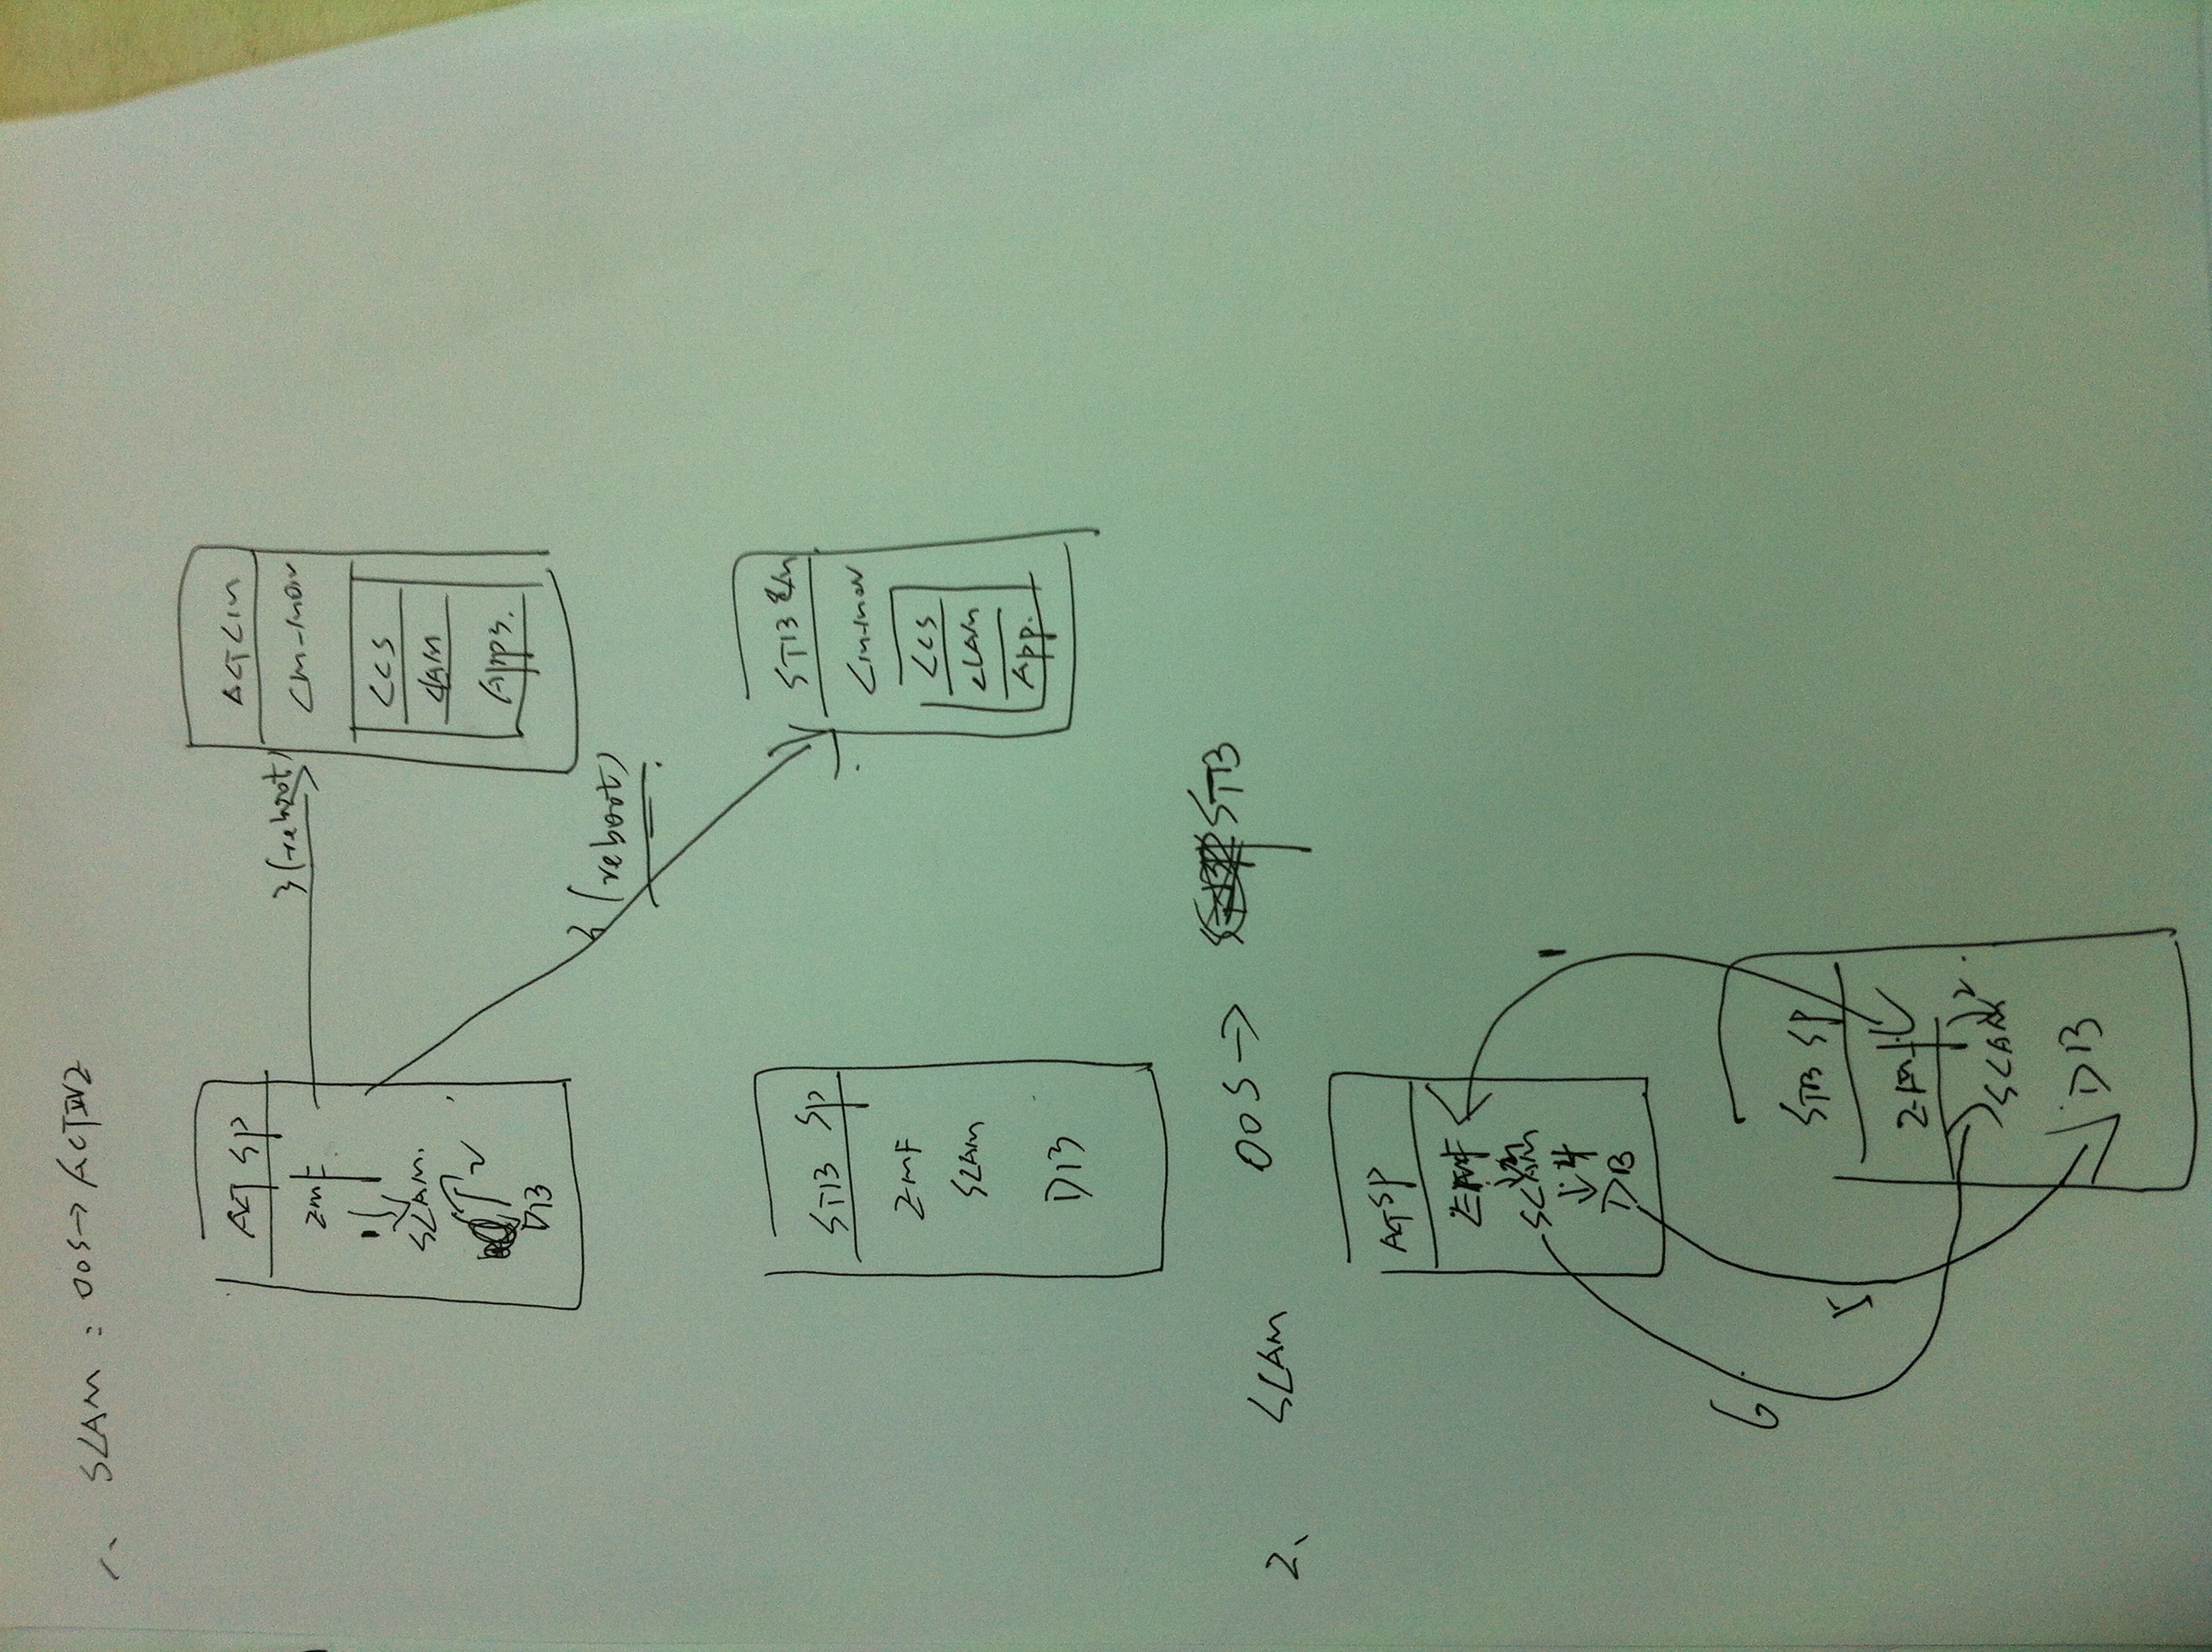 1、 SCAM : OOS→ ACTIVE
ACT SP
EMF
1
SCAM.
2
DB
3 (reboot)
ACT CM
CM-MON
CCS
CLAM
Apps.
3 (reboot)
STB SP
EMF
SCAM
DB
STB CM
CM-MON
CCS
CLAM
App.
2、 SCAM OOS→ STB
ACT SP
EMF
3
SCAM
4
DB
1
6
5
STB SP
EMF
2
SCAM
DB